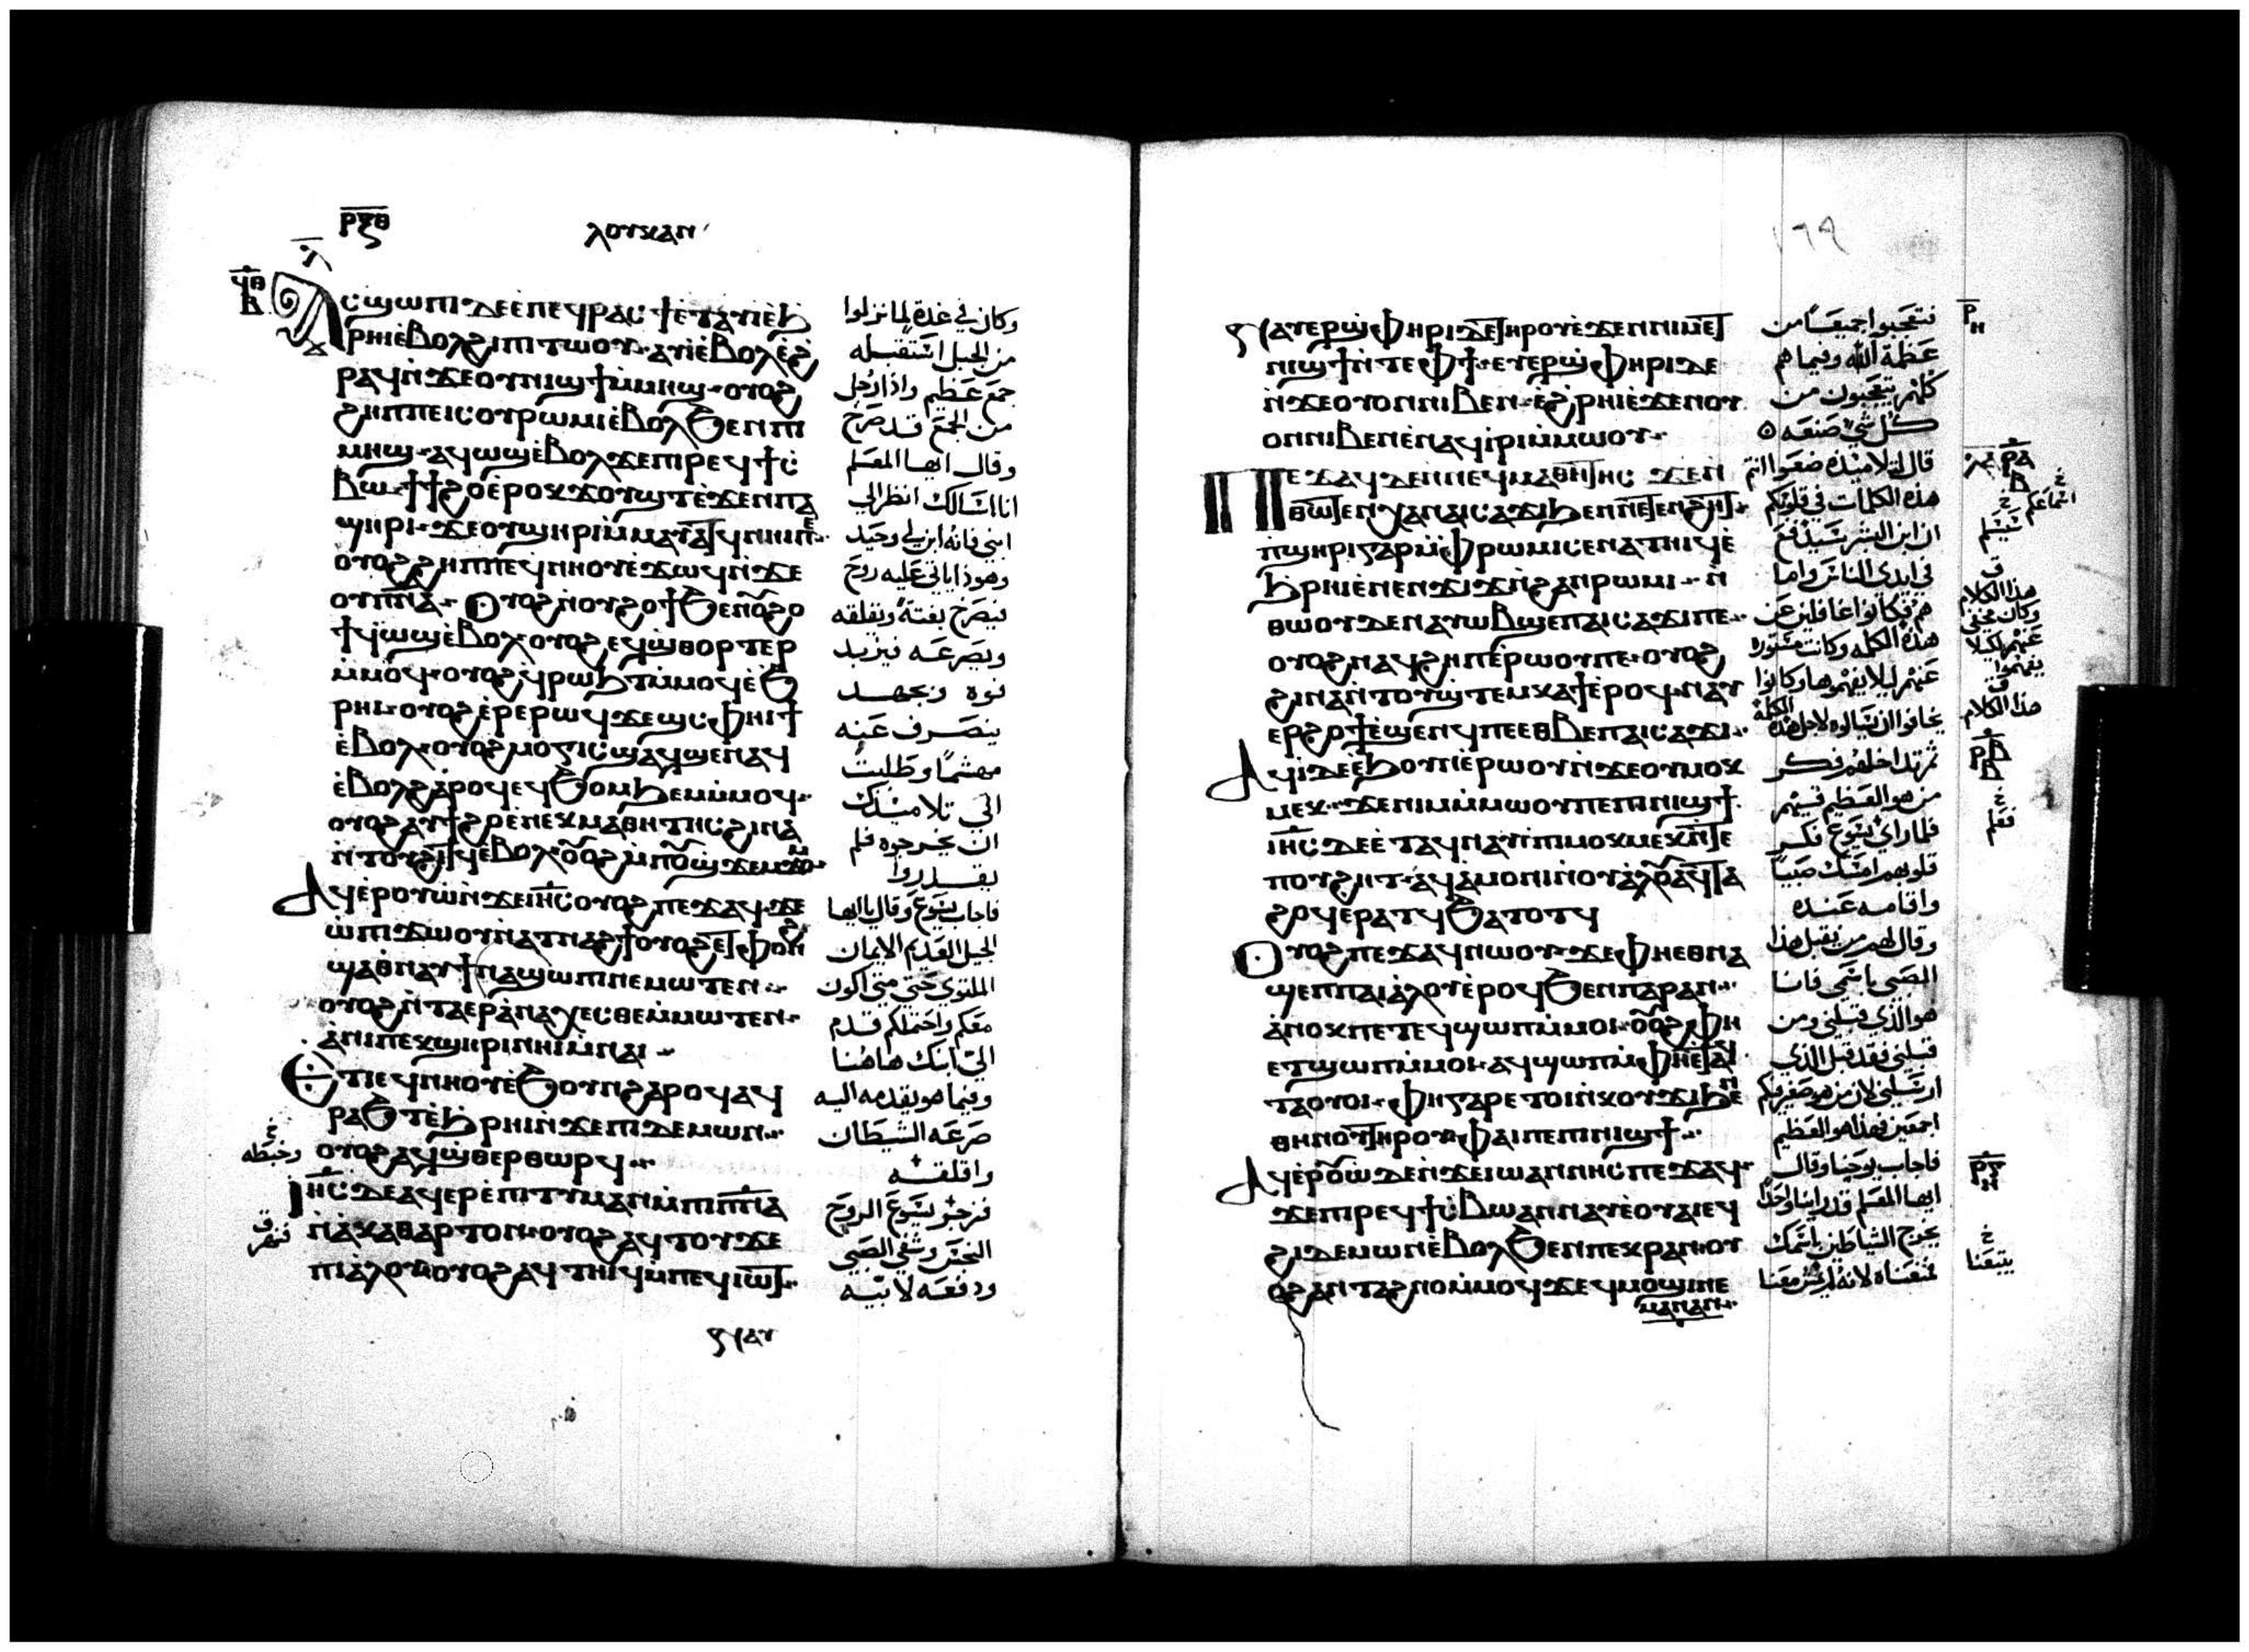 ⲣⲝⲑ
ⲗⲟⲩⲕⲁⲛ
ⲁⲥϣⲱⲡⲓ ⲇⲉ ⲉⲡⲉϥⲣⲁⲥϯ ⲉⲧⲁⲩⲓ ⲉϧ
ⲣⲏⲓ ⲉⲃⲟⲗϩⲓ ⲡⲓⲧⲱⲟⲩ ⲁⲩⲓ ⲉⲃⲟⲗ ⲉϩ
ⲣⲁϥ ⲛϫⲉ ⲟⲩⲛⲓϣϯ ⲙⲙⲏϣ ⲟⲩⲟϩ
ϩⲏⲡⲡⲉ ⲓⲥ ⲟⲩⲣⲱⲙⲓ ⲉⲃⲟⲗϧⲉⲛ ⲡⲓ
ⲙⲏϣ ⲁϥⲱϣ ⲉⲃⲟⲗ ϫⲉ ⲡⲓⲣⲉϥϯⲥ
ⲃⲱ ϯϯϩⲟ ⲉⲣⲟⲕ ϫⲟⲩϣⲧ ⲉϫⲉⲛ ⲡⲁ
ϣⲏⲣⲓ ϫⲉ ⲟⲩϣⲏⲣⲓ ⲙⲙⲁⲩⲁⲧϥ ⲛⲏⲓ ⲡⲉ
ⲟⲩⲟϩ ϩⲏⲡⲡⲉ ϥⲛⲏⲟⲩ ⲉϫⲱϥ ⲛϫⲉ
ⲟⲩⲡⲛⲁ ⲟⲩⲟϩ ⲛⲟⲩϩⲟϯ ϧⲉⲛ ⲟⲩϩⲟ
ϯ ϥⲱϣ ⲉⲃⲟⲗ ⲟⲩⲟϩ ⲉϥϣⲑⲟⲣⲧⲉⲣ
ⲙⲙⲟϥ ⲟⲩⲟϩ ϥⲣⲱϧⲧ ⲙⲙⲟϥ ⲉϧ
ⲣⲏⲓ ⲟⲩⲟϩ ⲉⲣⲉ ⲣⲱϥ ϫⲉϣ ⲥⲫⲏⲓϯ
ⲉⲃⲟⲗ ⲟⲩⲟϩ ⲙⲟⲅⲓⲥ ϣⲁϥϣⲉⲛⲁϥ
ⲉⲃⲟⲗϩⲁⲣⲟϥ ⲉϥϧⲟⲙϧⲉⲙ ⲙⲙⲟϥ
ⲟⲩⲟϩ ⲁⲓϯϩⲟ ⲉⲛⲉⲕⲙⲁⲑⲏⲧⲏⲥ ϩⲓⲛⲁ
ⲛⲧⲟⲩϩⲓⲧϥ ⲉⲃⲟⲗ ⲟⲩⲟϩ ⲙⲡⲟⲩϣϫⲉⲙϫⲟⲙ
ⲁϥⲉⲣⲟⲩⲱ ⲛϫⲉ ⲓⲏⲥ ⲟⲩⲟϩ ⲡⲉϫⲁϥ ϫⲉ
ⲱ ⲡⲓϫⲱⲟⲩ ⲛⲁⲑⲛⲁϩϯ ⲟⲩⲟϩ ⲉⲧⲫⲟⲛϩ
ϣⲁ ⲑⲛⲁⲩ ϯⲛⲁϣⲱⲡⲓ ⲛⲉⲙⲱⲧⲉⲛ
ⲟⲩⲟϩ ⲛⲧⲁⲉⲣⲁⲛⲁⲭⲉⲥⲑⲉ ⲙⲙⲱⲧⲉⲛ
ⲁⲛⲓ ⲡⲉⲕϣⲏⲣⲓ ⲛⲏⲓ ⲙⲛⲁⲓ
ⲉⲧⲓ ⲉϥⲛⲏⲟⲩ ⲉϧⲟⲩⲛ ϩⲁⲣⲟϥ ⲁϥ
ⲣⲁϧⲧ ⲉϧⲣⲏⲓ ⲛϫⲉ ⲡⲓⲇⲉⲙⲱⲛ
ⲟⲩⲟϩ ⲁϥϣⲑⲉⲣⲑⲱⲣϥ
ⲓⲏⲥ ⲇⲉ ⲁϥⲉⲣⲉⲡⲓⲧⲓⲙⲁⲛ ⲙⲡⲓⲡⲛⲁ
ⲛⲁⲕⲁⲑⲁⲣⲧⲟⲛ ⲟⲩⲟϩ ⲁϥⲧⲟⲩϫⲉ
ⲡⲓⲁⲗⲟⲩ ⲟⲩⲟϩ ⲁϥⲧⲏⲓϥ ⲙⲡⲉϥⲓⲱⲧ
وكان في غدة لما نزلوا
من الجبل استقبله
جمع عظيم واذا رجل
من الجمع قد صرخ
وقال ايها المعلم
انا اسالك انظر الي
ابني فانه ابن لي وحيد
وهوذا ياتي عليه روح
فيصرخ بغتة ويقلقه
ويصرعه فيزبد
فوه وبجهد
ينصرف عنه
مهشما وطلبت
الي تلاميدك
ان يخرجوه فلم
يقدروا
فاجاب يسوع وقال يا ايها
الجيل العديم الايمان
الملتوي حتى متى اكون
معكم واحتملكم قدم
الي ابنك هاهنا
وفيما هو يقدمه اليه
صرعه الشيطان
واقلقه
فزجر يسوع الروح
النجس وشفي الصبي
ودفعه لابيه
وخبطه
فنهر
ⲁⲩ
١٦٩
ⲁⲩⲉⲣϣⲫⲏⲣⲓ ⲇⲉ ⲧⲏⲣⲟⲩ ⲉϫⲉⲛ ϯⲙⲉⲧ
ⲛⲓϣϯ ⲛⲧⲉ ⲫϯ ⲉⲩⲉⲣϣⲫⲏⲣⲓ ⲇⲉ
ⲛϫⲉ ⲟⲩⲟⲛ ⲛⲓⲃⲉⲛ ⲉϩⲣⲏⲓ ⲉϫⲉⲛ ⲟⲩ
ⲟⲛ ⲛⲓⲃⲉⲛ ⲉⲛⲁϥⲓⲣⲓ ⲙⲙⲱⲟⲩ
ⲡⲉϫⲁϥ ⲇⲉ ⲛⲛⲉϥⲙⲁⲑⲏⲧⲏⲥ ϫⲉ ⲛ
ⲑⲱⲧⲉⲛ ⲭⲁ ⲛⲁⲓⲥⲁϫⲓ ϧⲉⲛ ⲛⲉⲧⲉⲛϩⲏⲧ
ⲡϣⲏⲣⲓ ⲅⲁⲣ ⲙⲫⲣⲱⲙⲓ ⲥⲉⲛⲁⲧⲏⲓϥ ⲉ
ϧⲣⲏⲓ ⲉⲛⲉⲛϫⲓϫ ⲛϩⲁⲛⲣⲱⲙⲓ ⲛ
ⲑⲱⲟⲩ ⲇⲉ ⲛⲁⲩⲱⲃϣ ⲉⲡⲁⲓⲥⲁϫⲓ ⲡⲉ
ⲟⲩⲟϩ ⲛⲁϥϩⲏⲡ ⲉⲣⲱⲟⲩ ⲡⲉ ⲟⲩⲟϩ
ϩⲓⲛⲁ ⲛⲧⲟⲩϣⲧⲉⲙⲕⲁϯ ⲉⲣⲟϥ ⲛⲁⲩ
ⲉⲣϩⲟϯ ⲉϣⲉⲛϥ ⲡⲉ ⲉⲑⲃⲉ ⲡⲁⲓⲥⲁϫⲓ
ⲁϥⲓ ⲇⲉ ⲉϧⲟⲩⲛ ⲉⲣⲱⲟⲩ ⲛϫⲉ ⲟⲩⲙⲟⲕ
ⲙⲉⲕ ϫⲉ ⲛⲓⲙ ⲙⲙⲱⲟⲩ ⲡⲉ ⲡⲓⲛⲓϣϯ
ⲓⲏⲥ ⲇⲉ ⲉⲧⲁϥⲛⲁⲩ ⲉⲡⲓⲙⲟⲕⲙⲉⲕ ⲛⲧⲉ
ⲡⲟⲩϩⲏⲧ ⲁϥⲁⲙⲟⲛⲓ ⲛⲟⲩⲁⲗⲟⲩ ⲁϥⲧⲁ
ϩⲟϥ ⲉⲣⲁⲧϥ ϧⲁⲧⲟⲧϥ
ⲟⲩⲟϩ ⲡⲉϫⲁϥ ⲛⲱⲟⲩ ϫⲉ ⲫⲏ ⲉⲑⲛⲁ
ϣⲉⲡ ⲡⲁⲓⲁⲗⲟⲩ ⲉⲣⲟϥ ϧⲉⲛ ⲡⲁⲣⲁⲛ
ⲁⲛⲟⲕ ⲡⲉⲧⲉϥϣⲱⲡ ⲙⲙⲟⲓ ⲟⲩⲟϩ ⲫⲏ
ⲉⲧϣⲱⲡ ⲙⲙⲟⲓ ⲁϥϣⲱⲡ ⲙⲫⲏ ⲉⲧⲁϥ
ⲧⲁⲟⲩⲟⲓ ⲫⲏ ⲅⲁⲣ ⲉⲧⲟⲓ ⲛⲕⲟⲩϫⲓ ϧⲉⲛ
ⲑⲏⲛⲟⲩ ⲧⲏⲣⲟⲩ ⲫⲁⲓ ⲡⲉ ⲡⲓⲛⲓϣϯ
ⲁϥⲉⲣⲟⲩⲱ ⲇⲉ ⲛϫⲉ ⲓⲱⲁⲛⲛⲏⲥ ⲡⲉϫⲁϥ
ϫⲉ ⲡⲓⲣⲉϥϯⲥⲃⲱ ⲁⲛⲛⲁⲩ ⲉⲟⲩⲁⲓ ⲉϥ
ϩⲓ ⲇⲉⲙⲱⲛ ⲉⲃⲟⲗ ϧⲉⲛ ⲡⲉⲕⲣⲁⲛ ⲟⲩ
ⲟϩ ⲁⲛⲧⲁϩⲛⲟ ⲙⲙⲟϥ ϫⲉ ϥⲙⲟϣⲓ ⲛⲉ
ⲙⲁⲛ ⲁⲛ
فتعجبوا جميعا من
عظمة الله وفيما هم
كلهم يتعجبون من
كل شي صنعه
قال لتلاميذه ضعوا انتم
هذه الكلمات في قلوبكم
ان ابن البشر سيدفع
في ايدي الناس واما
هم فكانوا غافلين عن
هذه الكلمه وكانت مستوره
عنهم ليلا يفهموها وكانوا
يخافوا ان يسالوه لاجل هذه الكلمة
ثم تداخلهم فكر
من هو العظيم فيهم
فلما راي يسوع فكر
قلوبهم امسك صبيا
واقامه عنده
وقال لهم من يقبل هذا
الصبي باسمي فانا
هو الذي قبلني ومن
قبلني فقد قبل الذي
ارسلني لان من هو صغير فيكم
اجمعين فهذا هو العظيم
فاجاب يوحنا وقال
ايها المعلم قد راينا واحدا
يخرج الشياطين باسمك
فمنعناه لانه لم يمش معنا
ⲣ
ⲏ
ⲣⲁ
ⲃ
اسماعكم
سيسلم
هذا الكلام
وكان مخفي
عنهم لكيلا
يفهموا
هذا الكلام
ⲣⲃ
ⲃ
فعلم
ⲣⲅ
ⲏ
يتبعنا